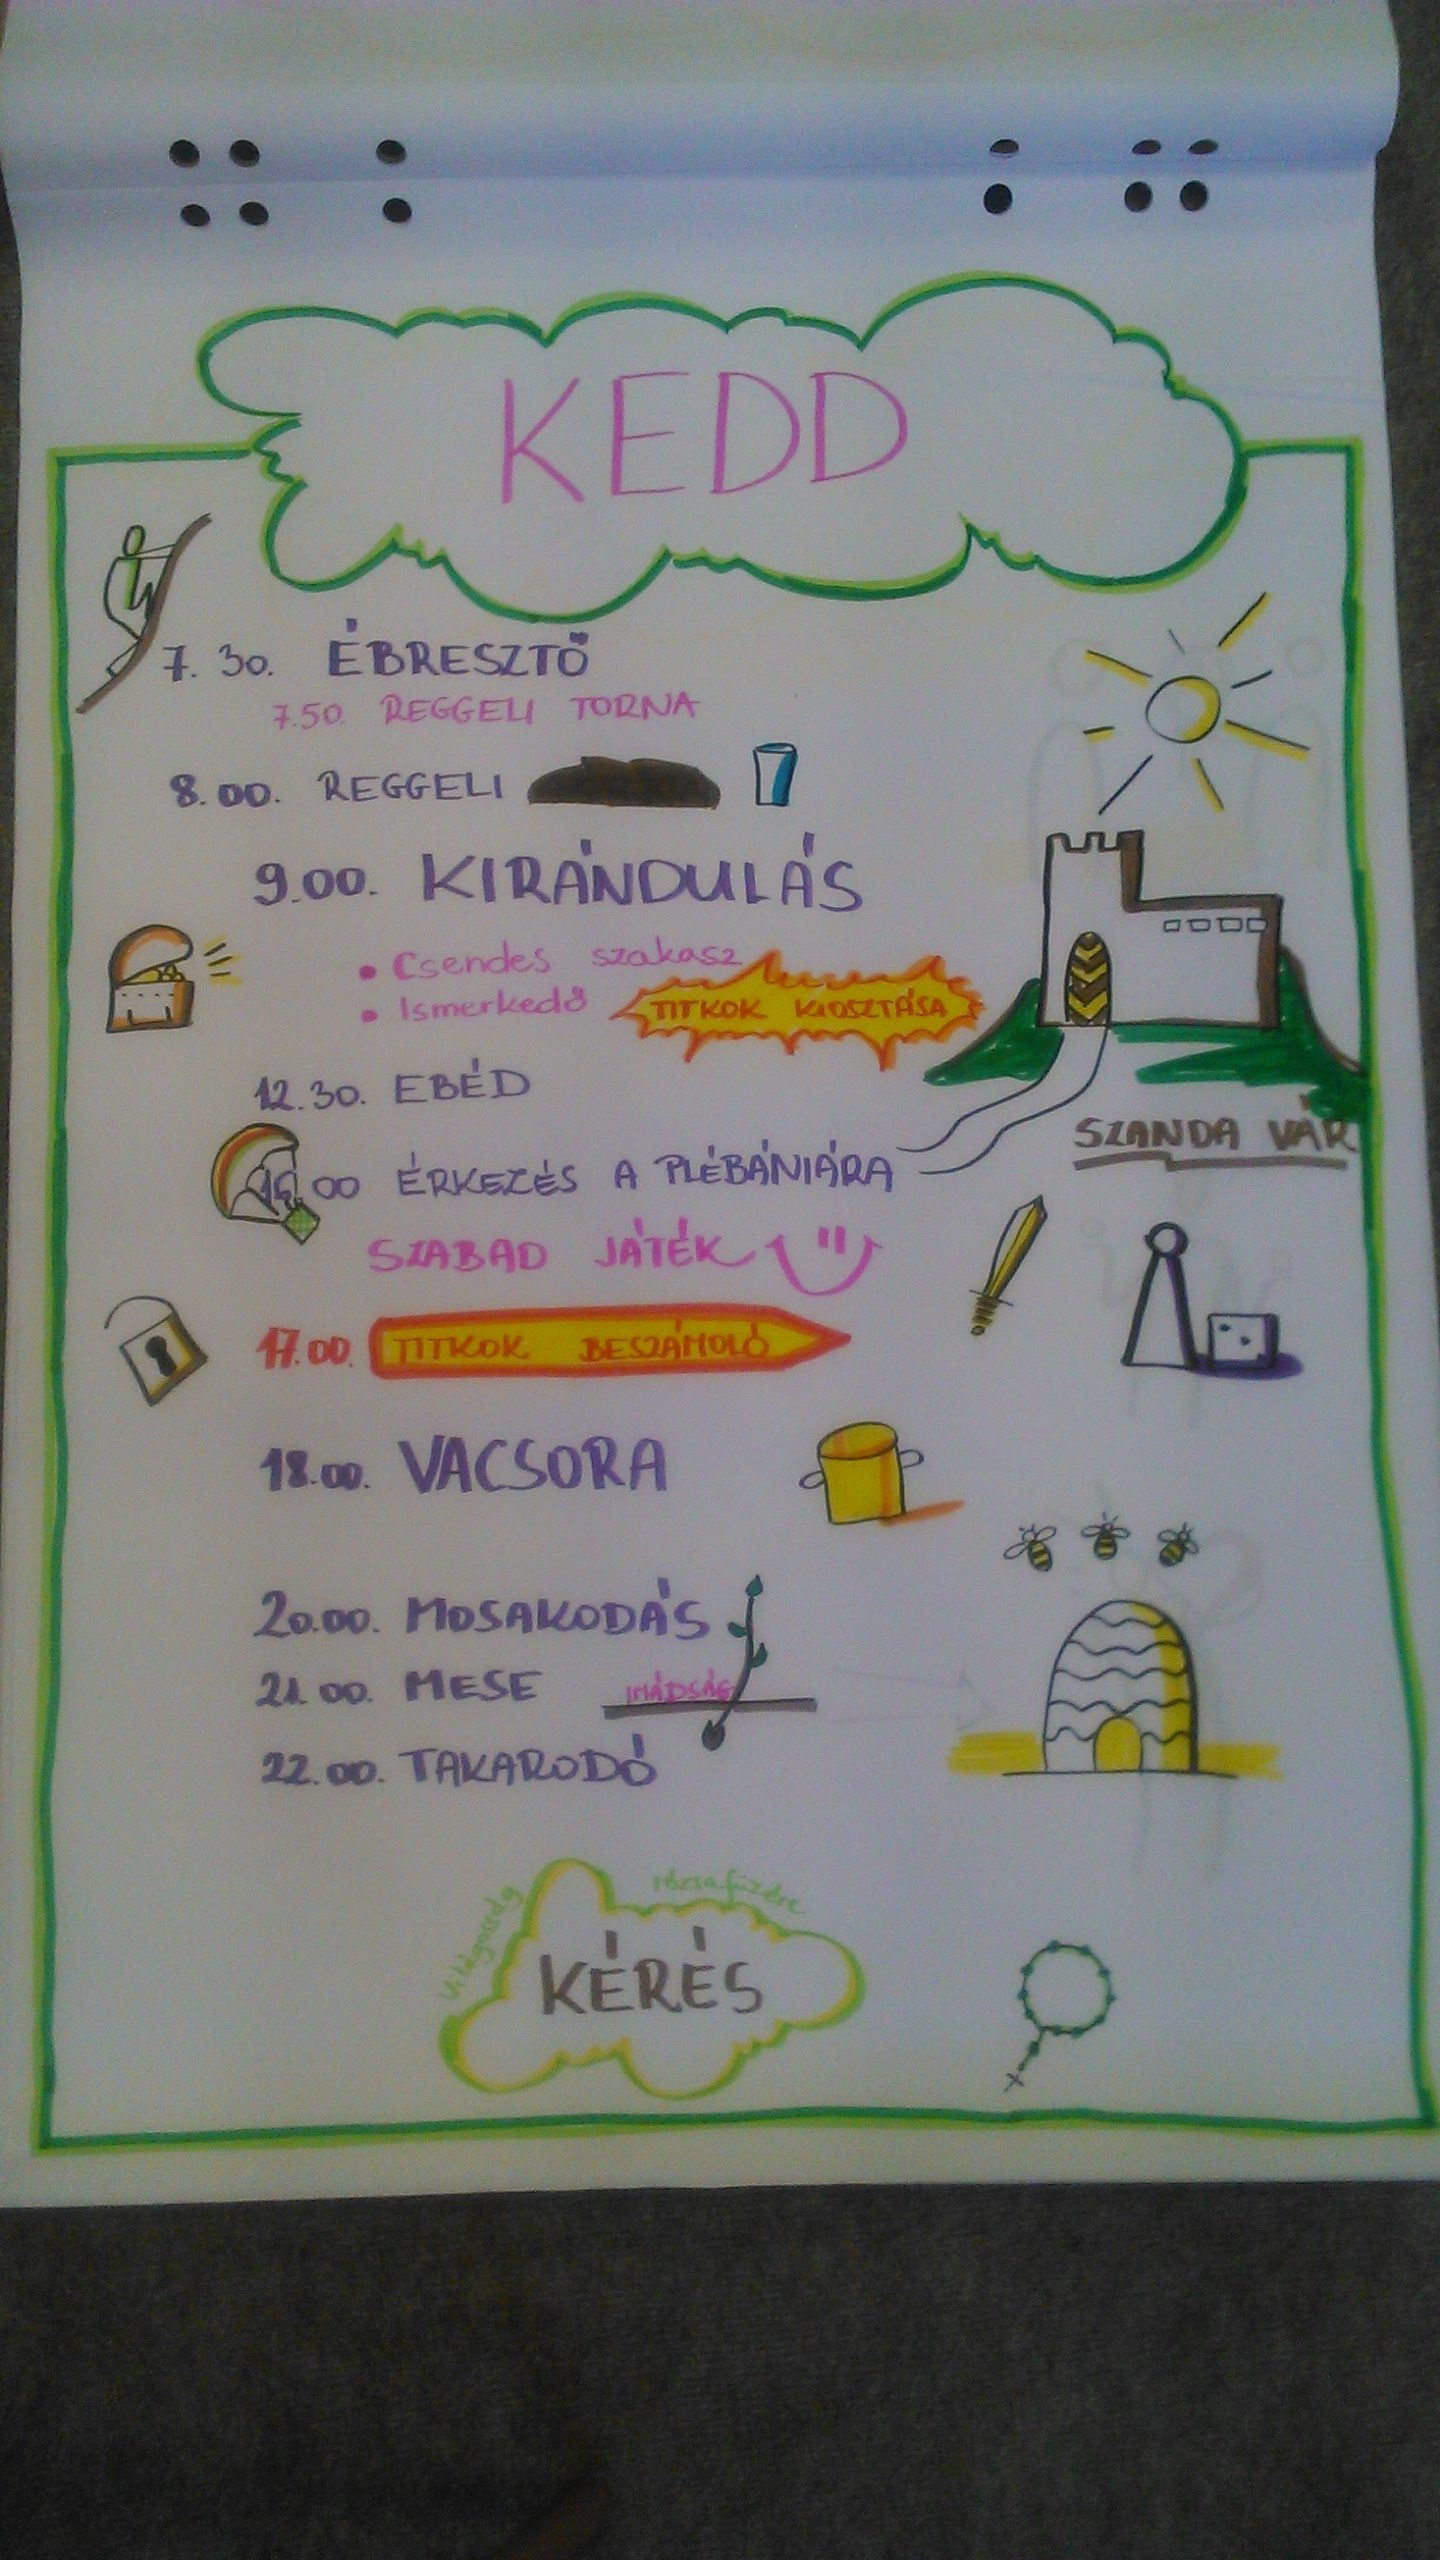 KEDD
7.30. ÉBRESZTŐ
7.50. REGGELI TORNA
8.00. REGGELI
9.00. KIRÁNDULÁS
• Csendes szakasz
• Ismerkedő TITKOK KIOSZTÁSA
12.30. EBÉD
SZANDA VÁR
00 ÉRKEZÉS A PLÉBÁNIÁRA
SZABAD JÁTÉK
17.00. TITKOK BESZÁMOLÓ
18.00. VACSORA
20.00. MOSAKODÁS
21.00. MESE IMÁDSÁG
22.00. TAKARODÓ
Világosság rózsafüzére
KÉRÉS